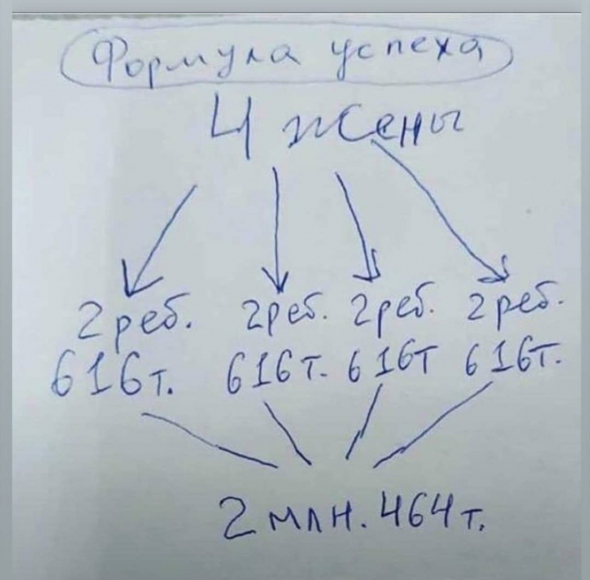 Формула успеха
4 жены
2 реб. 2 реб. 2 реб. 2 реб.
616 т. 616 т. 616 т 616 т.
2 млн. 464 т.